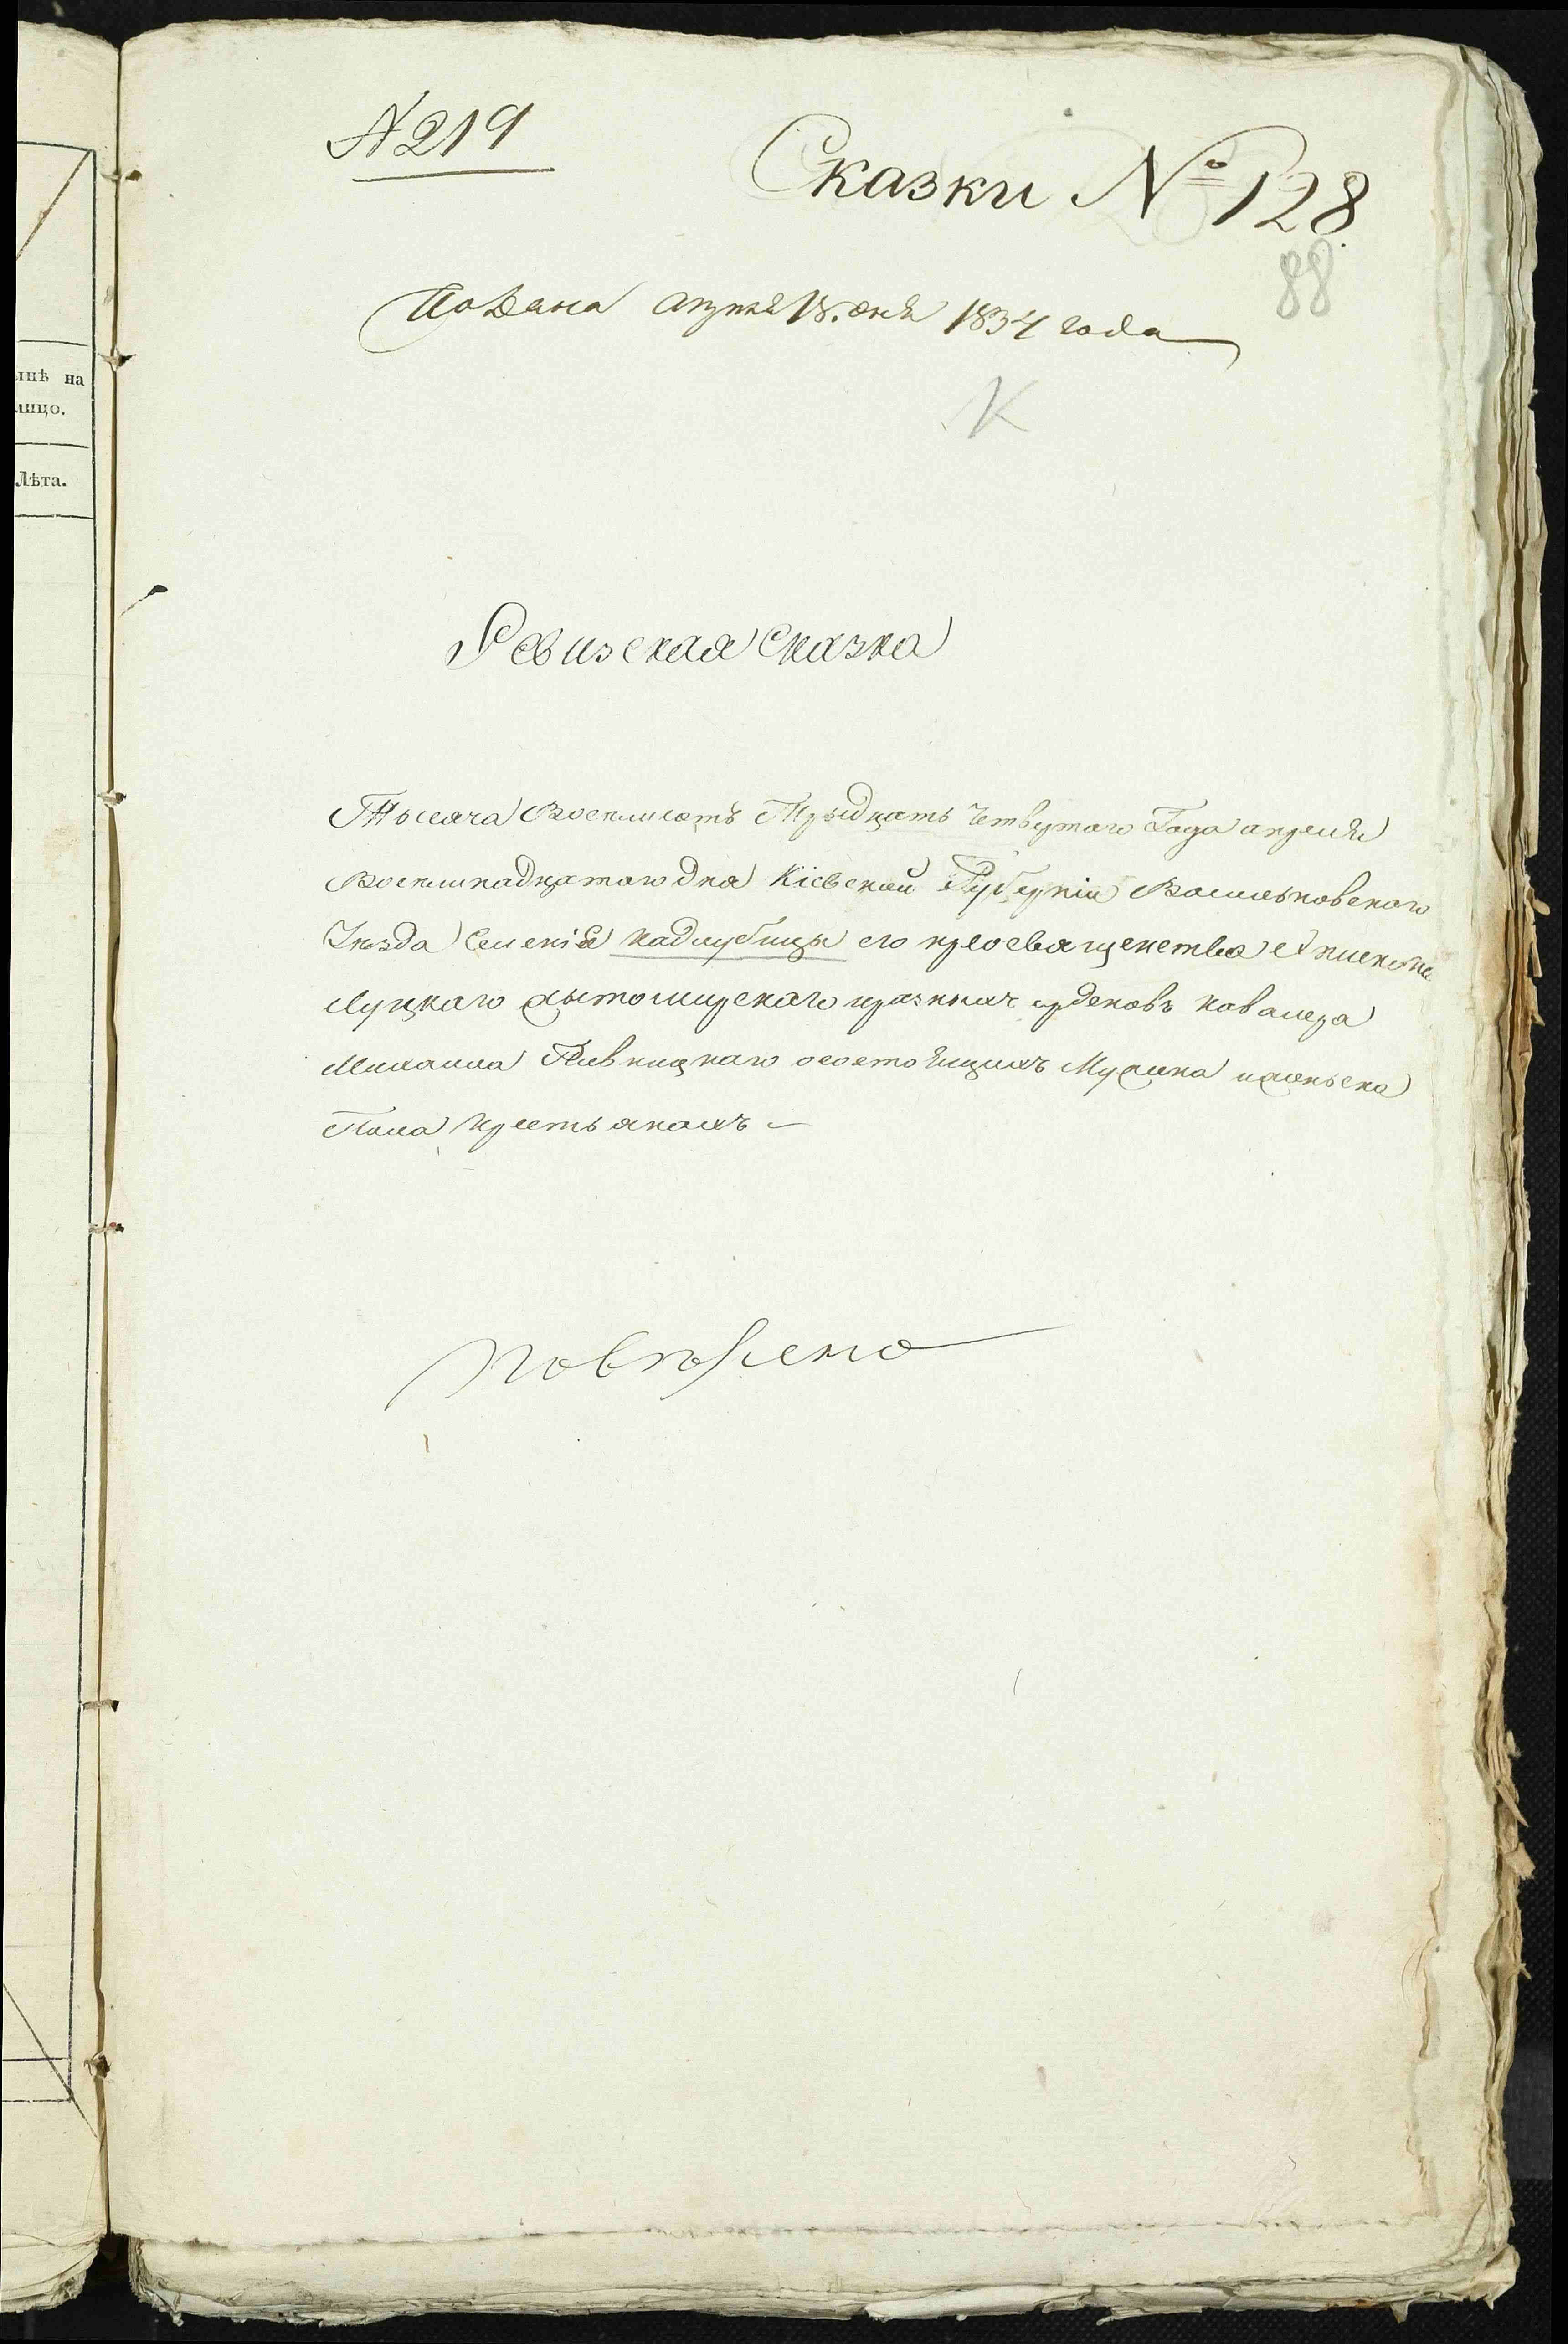 № 219
Сказки № 128
88
Подана апреля 18. дня 1834 года
К
Ревизская Сказка
Тысяча Восемьсотъ Трыдцать Четвертого Года апреля
Восемнадцатого дня Кіевской Губерніи Васильковского
Уезда Селенія Кадлубицы его преосвященства Епископа
Луцкаго Жытомирскаго и разныхъ орденовъ кавалера
Михаила Пивницкаго о состоящихъ Мужска и женьска
Пола крестьянахъ
поверено
лнѣ на
лицо.
Лѣта.